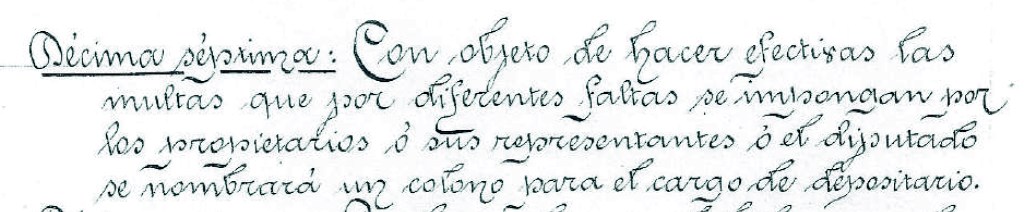 Décima séptima: Con objeto de hacer efectivas las
multas que por diferentes faltas se impongan por
los propietarios ó sus representantes ó el diputado
se nombrará un colono para el cargo de depositario.